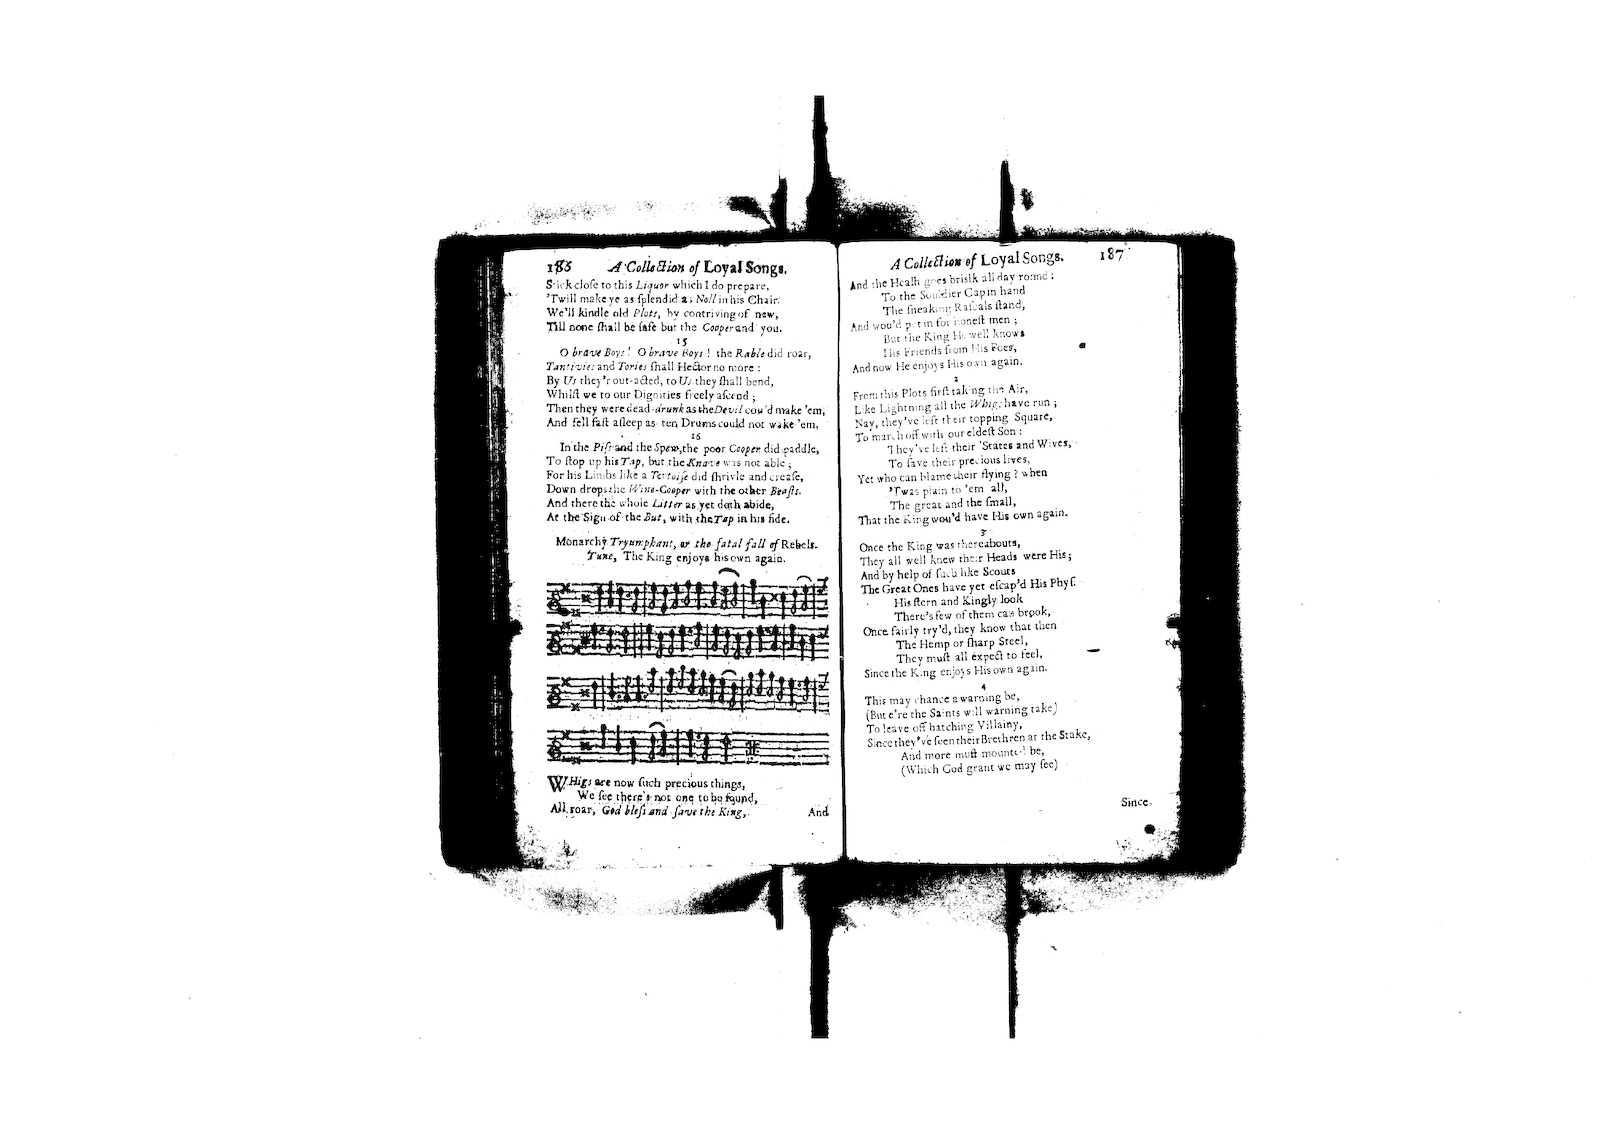 186 A Collection of Loyal Songs.
Stick close to this Liquor which I do prepare,
'Twill make ye as ſplendid as Noll in his Chair.
We'll kindle old Plots, by contriving of new,
Till none ſhall be ſafe but the Cooper and you.
15
O brave Boys! O brave Boys! the Rable did roar,
Tantivies and Tories ſhall Hector no more:
By Us they'r out-acted, to Us they ſhall bend,
Whilſt we to our Dignities freely aſcend;
Then they were dead drunk as the Devil cou'd make 'em,
And fell faſt aſleep as ten Drums could not wake 'em,
16
In the Piſs and the Spew, the poor Cooper did paddle,
To ſtop up his Tap, but the Knave was not able;
For his Limbs like a Tortoiſe did ſhrivle and creaſe,
Down drops the Wine-Cooper with the other Beaſts.
And there the whole Litter as yet doth abide,
At the Sign of the But, with the Tap in his ſide.
Monarchy Tryumphant, or the fatal fall of Rebels.
Tune, The King enjoys his own again.
WHigs are now ſuch precious things,
We ſee there's not one to be found,
All roar, God bleſs and ſave the King,
And
A Collection of Loyal Songs. 187
And the Health goes briſk all day round:
To the Souldier Cap in hand
The ſneaking Raſcals ſtand,
And wou'd put in for honeſt men;
But the King He well knows
His Friends from His Foes,
And now He enjoys His own again.
2
From this Plots firſt taking the Air,
Like Lightning all the Whigs have run;
Nay, they've left their topping Square,
To march off with our eldeſt Son:
They've left their 'States and Wives,
To ſave their precious lives,
Yet who can blame their flying? when
'Twas plain to 'em all,
The great and the ſmall,
That the King wou'd have His own again.
3
Once the King was thereabouts,
They all well knew their Heads were His;
And by help of ſuch like Scouts
The Great Ones have yet eſcap'd His Phyſ.
His ſtern and Kingly look
There's few of them can brook,
Once fairly try'd, they know that then
The Hemp or ſharp Steel,
They muſt all expect to feel,
Since the King enjoys His own again.
4
This may chance a warning be,
(But e're the Saints will warning take)
To leave off hatching Villainy,
Since they've ſeen their Brethren at the Stake,
And more muſt mounted be,
(Which God grant we may ſee)
Since